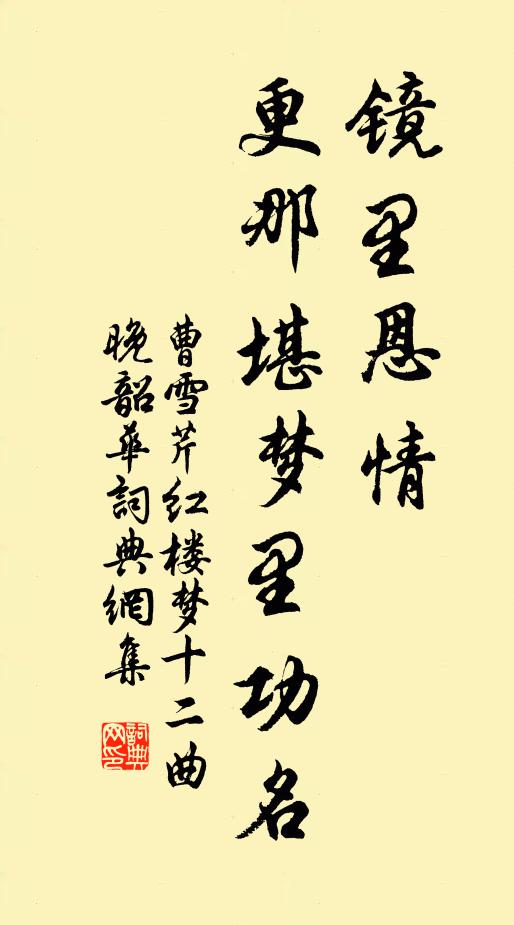 镜里恩情
更那堪梦里功名
曹雪芹红楼梦十二曲
晚韶华詞典網集
詞典
网印